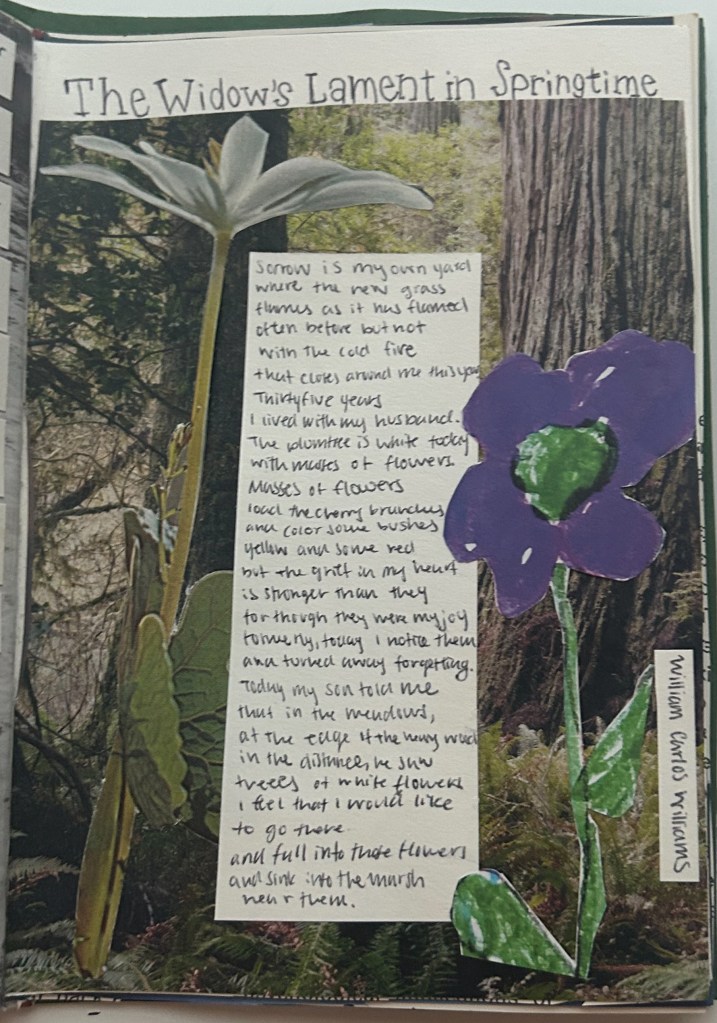 The Widow's Lament in Springtime
Sorrow is my own yard
where the new grass
flames as it has flamed
often before but not
with the cold fire
that closes around me this year
Thirtyfive years
I lived with my husband.
The plumtree is white today
with masses of flowers.
Masses of flowers
load the cherry branches
and color some bushes
yellow and some red
but the grief in my heart
is stronger than they
for though they were my joy
formerly, today I notice them
and turned away forgetting.
Today my son told me
that in the meadows,
at the edge of the heavy woods
in the distance, he saw
treees of white flowers
I feel that I would like
to go there
and fall into those flowers
and sink into the marsh
near them.
William Carlos Williams